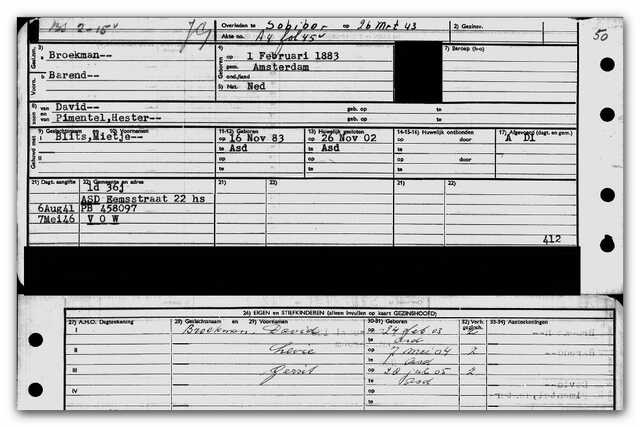 Overleden te Sobibor op 26 Mrt 43 2) Gezinsv.
Akte no. A4 fol 45v
50
3) Broekman-- 4) op 1 Februari 1883 7) Beroep (h-o)
gem. Amsterdam
Barend-- ond./land
5) Nat. Ned
8) van David-- geb. op te
en
Pimentel,Hester-- geb. op te
9) Geslachtsnaam 10) Voornamen 11-12) Geboren 13) Huwelijk gesloten 14-15-16) Huwelijk ontbonden 17) Afgevoerd (dagt. en gem.)
I Blits,Mietje-- op 16 Nov 83 op 26 Nov 02 op door A DI
te Asd te Asd te
II op op op door
te te te
21) Dagt. aangifte 22) Gemeente en adres
ld 36j
ASD Eemsstraat 22 hs
6Aug41 PB 458097
7Mei46 V O W
412
26) EIGEN en STIEFKINDEREN (alleen invullen op kaart GEZINSHOOFD)
27) A.H.O. Dagtekening 28) Geslachtsnaam en 29) Voornamen 30-31) Geboren 32) Verh. 33-34) Aantekeningen
I Broekman, David op 24 feb 03 2
te Asd
II Levie op 7 mei 04 2
te Asd
III Gerrit op 28 juli 05 2
te Asd
IV op
te